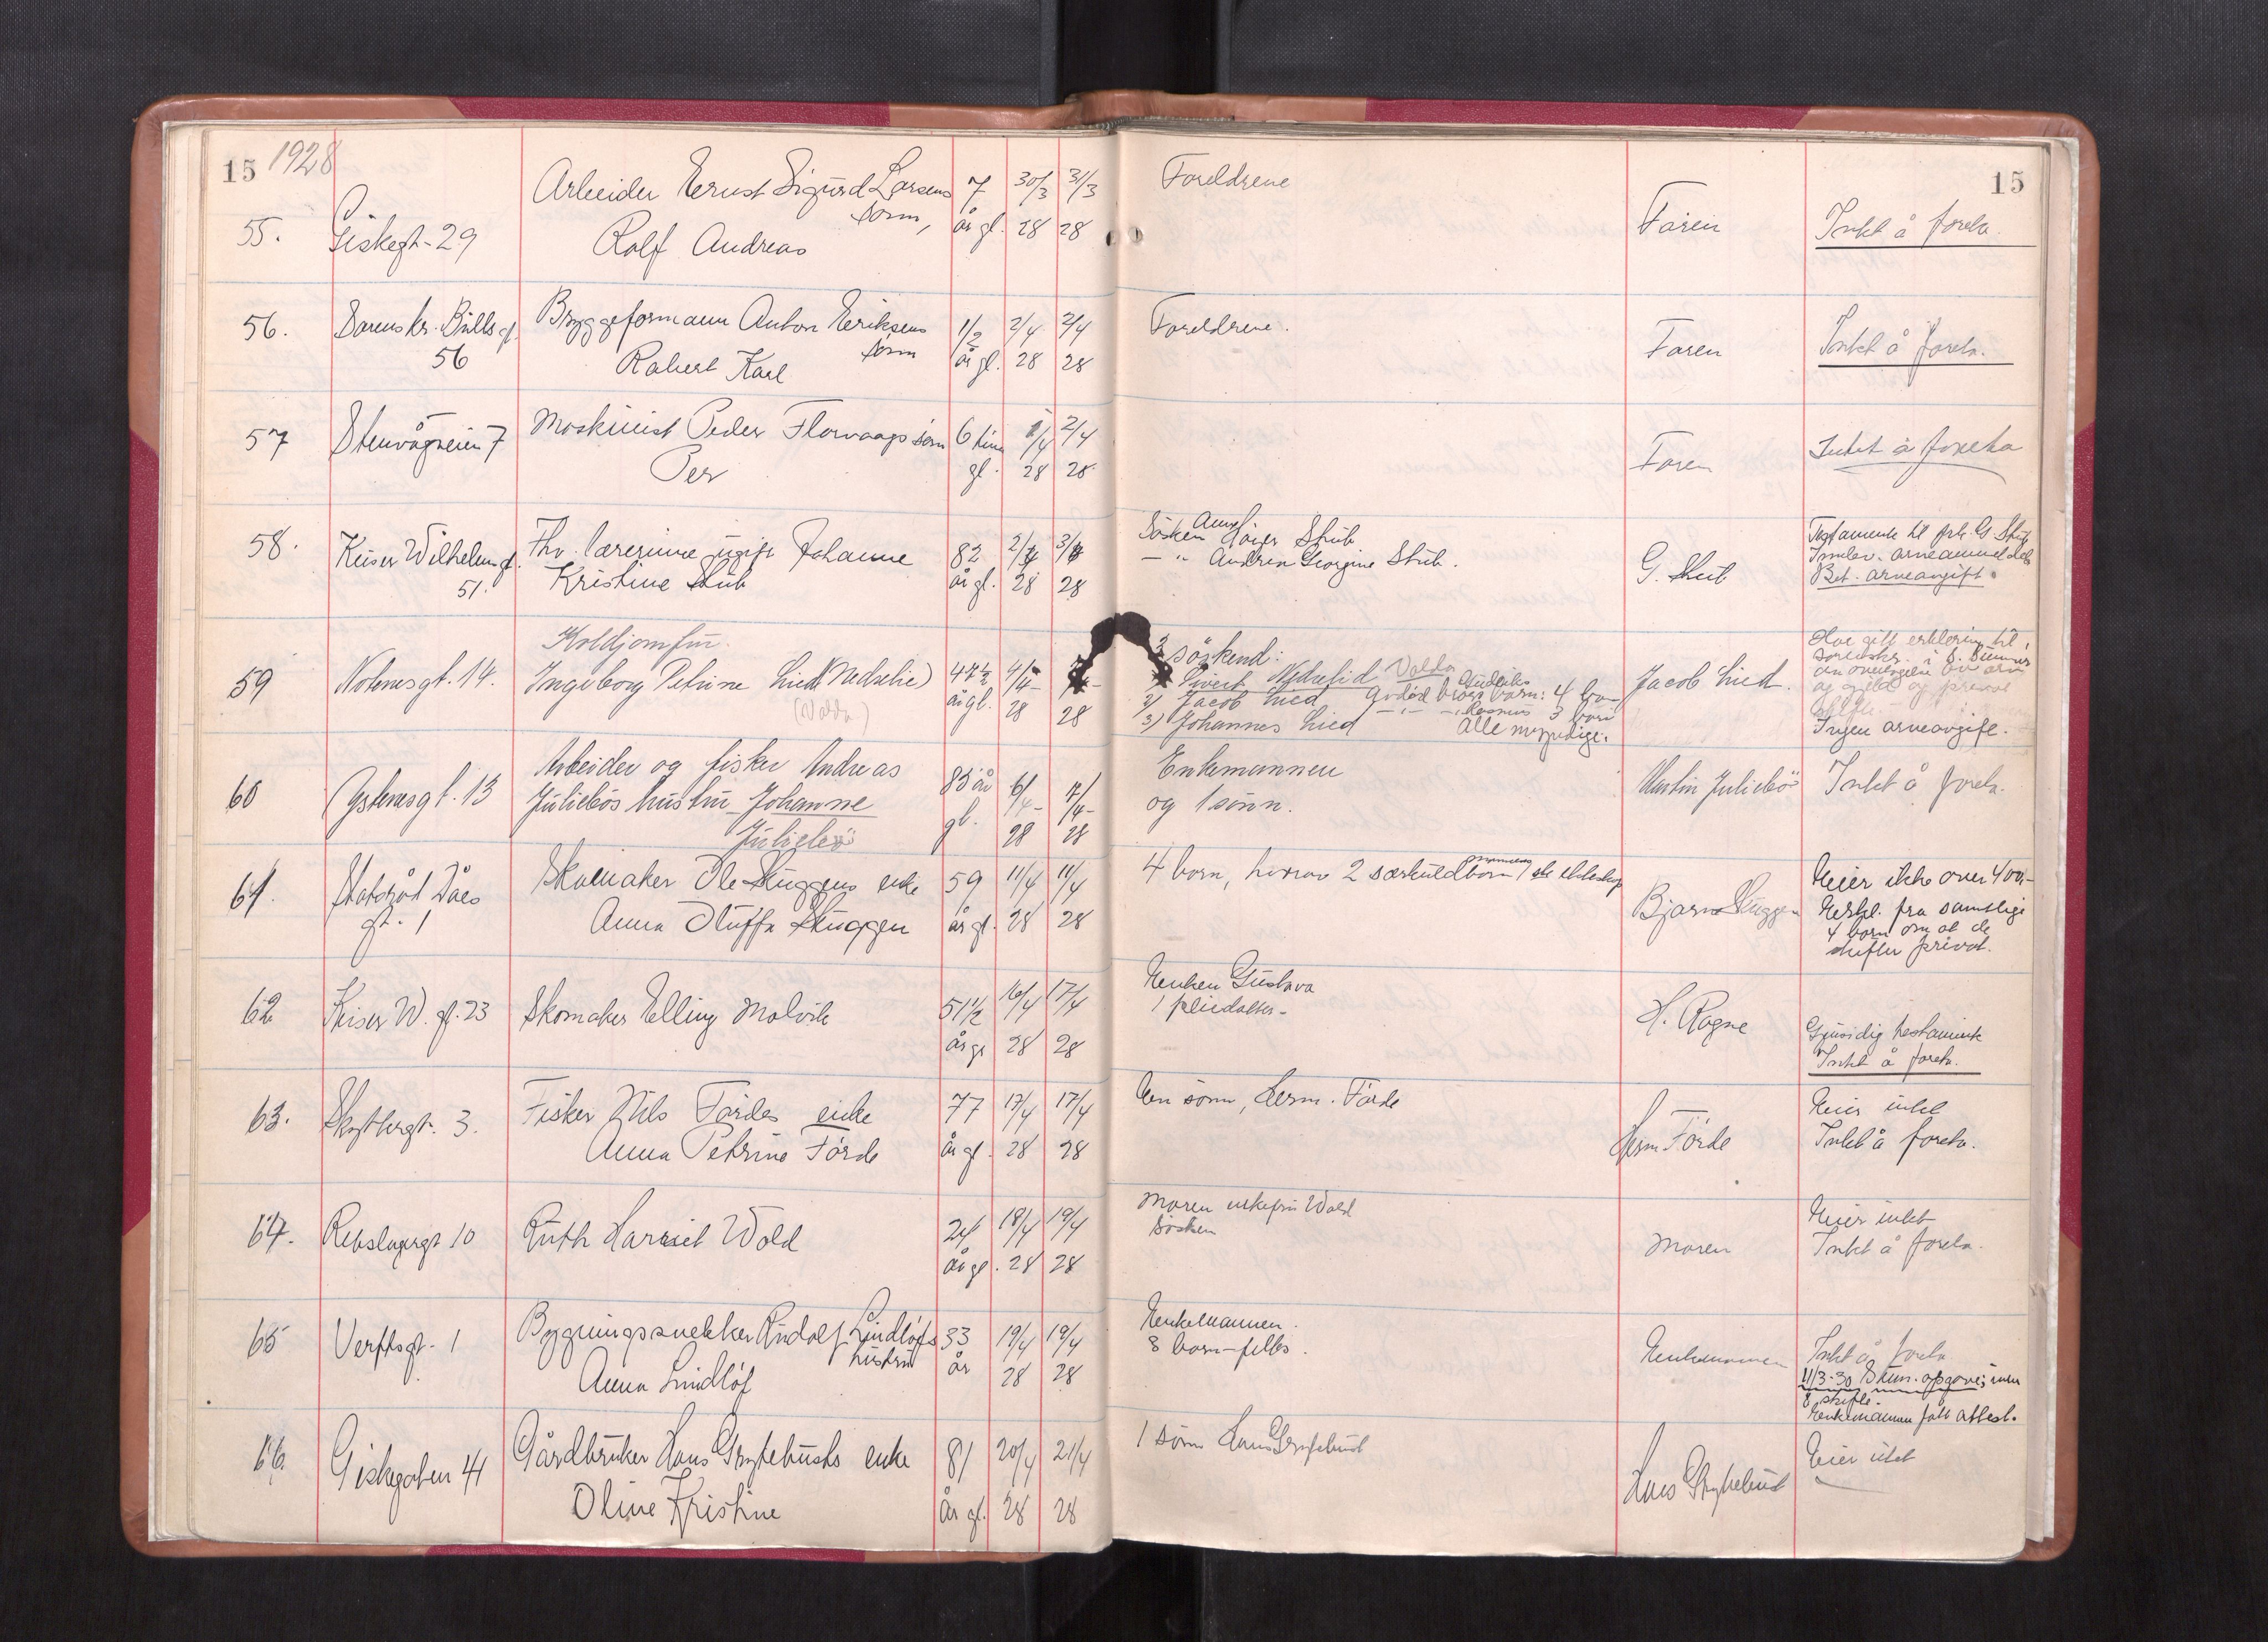 15 1928
55. Giskegt. 29
Arbeider Ernst Sigurd Larsens sønn,
Rolf Andreas
7 år gl. 30/3 28 31/3 28
Foreldrene
Faren
Intet å foreta.
15
56. Sorenskr. Bulls gt. 56
Bryggeformann Anton Eriksens sønn
Robert Karl
1/2 år gl. 2/4 28 2/4 28
Foreldrene.
Faren
Intet å foreta.
57 Stenvågveien 7
Maskinist Peder Florvaags sønn
Per
6 time gl. 1/4 28 2/4 28
Faren
Intet å foreta
58. Keiser Wilhelms gt. 51.
Fhv. lærerinne ugift Johanne
Kristine Stub
82 år gl. 2/4 28 3/4 28
Søsken Høier Stub
— " — Andrea Georgine Stub.
G. Stub
Testamente til frk. G. Stub
Innlev. arveanmeldels
Bet. arveavgift.
59 Notenesgt. 14.
Holdjomfru.
Ingeborg Petrine Lied
(Volda)
47 1/2 år gl. 4/4 28 28
3 søskend:
1) Sivert Nedrelid Volda
2) Jacob Lied Avdøde brors barn: 4 barn
3) Johannes Lied — " — Rasmus 3 barn
Alle myndige.
Jacob Lied.
Har gitt erklæring til
sorenskr. i S. Sunnmør
om overtagelse av arv
og gjeld og privat
skifte.
Ingen arveavgift.
60 Ystenesgt. 13
Arbeider og fisker Andreas
Juliebøs hustru Johanne
Juliebø
85 år gl. 6/4 28 7/4 28
Enkemannen
og 1 sønn.
Martin Juliebø
Intet å foreta.
61. Statsråd Daes gt. 1
Skomaker Ole Skuggens enke
Anna Oluffa Skuggen
59 år gl. 11/4 28 11/4 28
4 barn, hvorav 2 særkuldbarn mannens 1ste ekteskap
Bjarne Skuggen
Eier ikke over 400,-
Erkl. fra samtlige
4 barn om at de
skifter privat.
62 Keiser W. gt. 23
Skomaker Elling Malvik
51 1/2 år gl 16/4 28 17/4 28
Enken Gustava
1 pleiedatter.
H. Rogne
Gjensidig testamente
Intet å foreta.
63. Skytbergt. 3.
Fisker Nils Førdes enke
Anna Petrine Førde
77 år gl. 17/4 28 17/4 28
En sønn, Herm. Førde
Herm Førde
Eier intet
Intet å foreta.
64. Rebslagergt 10
Ruth Harriet Wold
24 år gl. 18/4 28 19/4 28
Moren enkefru Wold
Søsken
Moren
Eier intet
Intet å foreta.
65 Verftsgt. 1
Bygningssnekker Rudolf Lindløfs hustru
Anna Lindløf
33 år 19/4 28 19/4 28
Enkemannen.
8 barn – felles.
Enkemannen
Intet å foreta
11/3-30 opgave; uten
skifte.
Enkemannen fått attest.
66. Giskegaten 41
Gårdbruker Hans Grytebusts enke
Oline Kristine
81 år gl. 20/4 28 21/4 28
1 sønn Hans Grytebust
Hans Grytebust
Eier intet